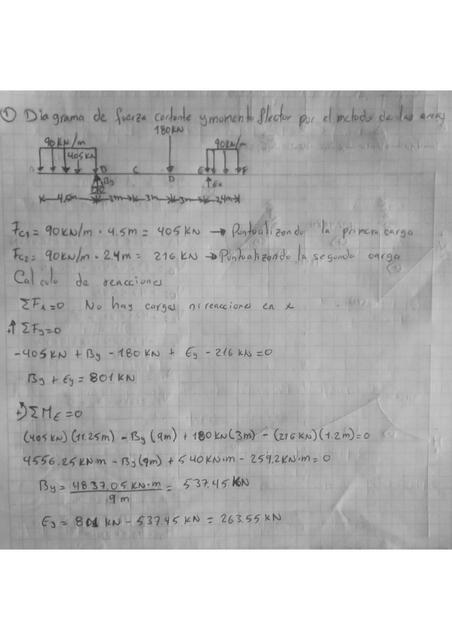 ① Diagrama de fuerza cortante y momento flector por el metodo de las areas
180KN
90KN/m 90KN/m
405KN
B C D E F
By Ey
4,5m 3m 3m 3m 2,4m
Fc1 = 90KN/m · 4.5m = 405 KN → Puntualizando la primera carga
Fc2 = 90KN/m · 2.4m = 216 KN → Puntualizando la segunda carga
Calculo de reacciones
ΣFx=0 No hay cargas ni reacciones en x
+↑ ΣFy=0
-405KN + By -180 KN + Ey -216 KN =0
By + Ey = 801 KN
ΣME =0
(405KN)(11.25m) - By (9m) + 180KN(3m) - (216KN)(1.2m)=0
4556.25KN·m - By(9m) + 540KN·m - 259.2KN·m = 0
By = 4837.05 KN·m = 537.45 KN
9m
Ey = 801 KN - 537.45 KN = 263.55 KN